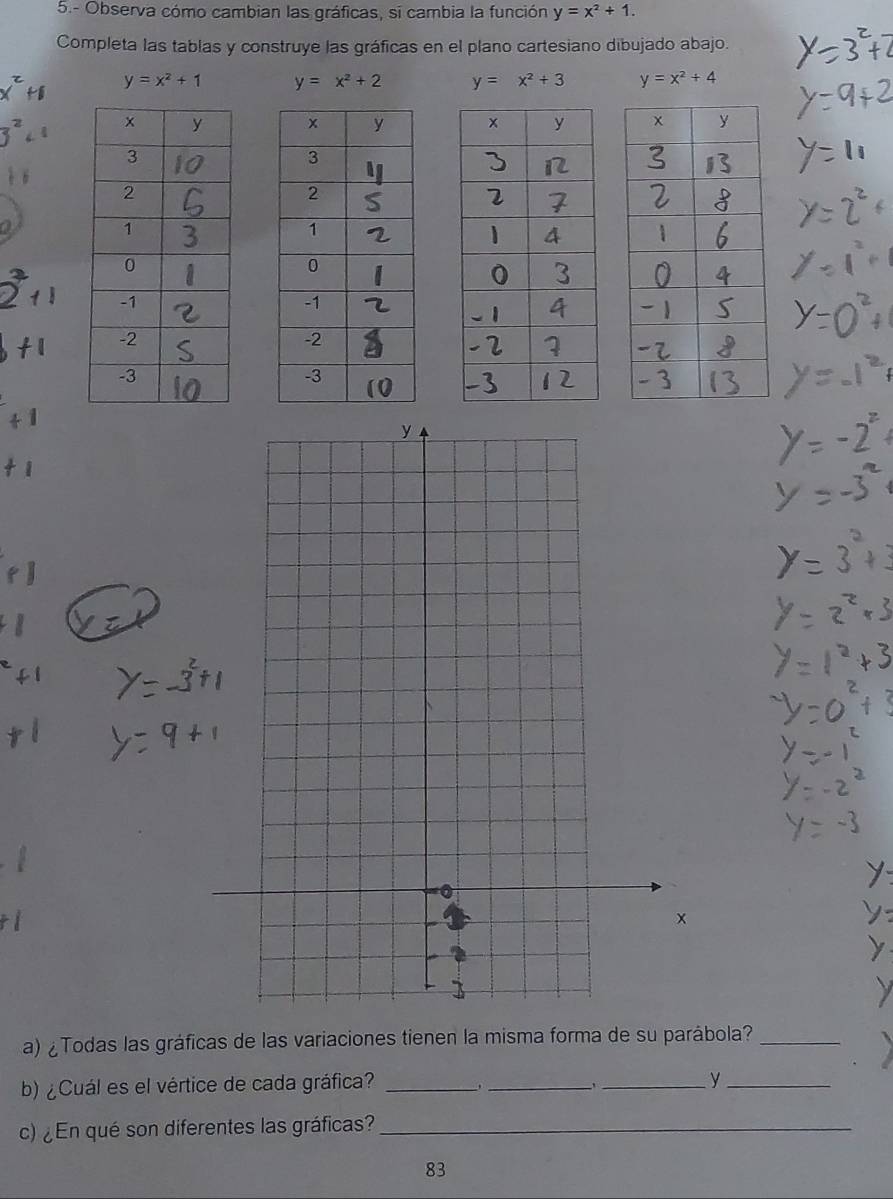 5.- Observa cómo cambian las gráficas, si cambia la función y = x² + 1.
Completa las tablas y construye las gráficas en el plano cartesiano dibujado abajo.
y = x² + 1 y = x² + 2 y = x² + 3 y = x² + 4
x y x y x y x y
3 10 3 11 3 12 3 13
2 5 2 5 2 7 2 8
1 3 1 2 1 4 1 6
0 1 0 1 0 3 0 4
-1 2 -1 2 -1 4 -1 5
-2 5 -2 -2 7 -2 8
-3 10 -3 10 -3 12 -3 13
x²+1
3²+1
2²+1
+1
+1
+1
+1
+1
²+1
+1
+1
y=-3²+1
y=9+1
y=3²+2
y=9+2
y=11
y=2²+
y=1²+1
y=0²+1
y=-1²+
y=-2²+
y=-3²+
y=3²+3
y=2²+3
y=1²+3
y=0²+3
y=-1²
y=-2²
y=-3
y=
y=
y
y
y
x
a) ¿Todas las gráficas de las variaciones tienen la misma forma de su parábola? ______
b) ¿Cuál es el vértice de cada gráfica? ______, ______, ______ y ______
c) ¿En qué son diferentes las gráficas? ______
83